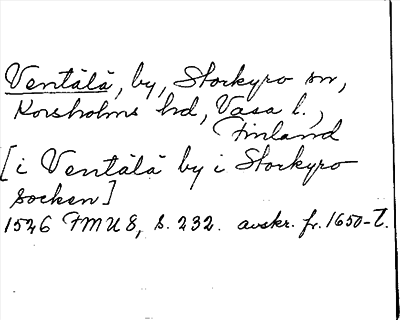 Ventälä, by, Storkyro sn,
Korsholms hd, Vasa l.,
Finland
[i Ventälä by i Storkyro
socken]
1546 FMU 8, s. 232. avskr. fr. 1650-t.